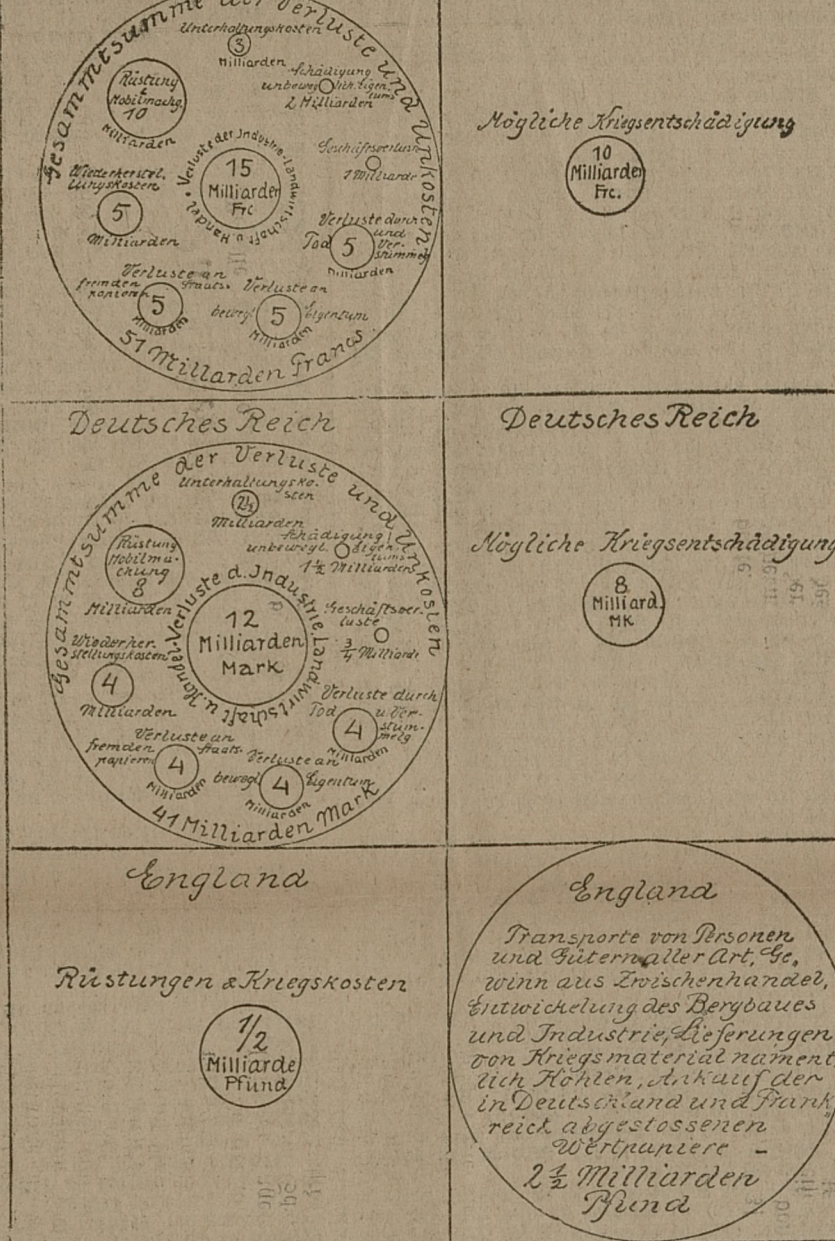 Gesammtsumme der Verluste und Unkosten
Unterhaltungskosten
3
Milliarden
Schädigung
unbewegl. Eigen-
tums
2 Milliarden
Rüstung
&
Mobilmachg.
10
Milliarden
Geschäftsverluste
1 Milliarde
Verluste der Industrie, Landwirtschaft u. Handel
15
Milliarden
Frc
Wiederherstel.
lungskosten
5
Milliarden
Verluste durch
Tod und
5 Ver-
stümmelg
Milliarden
Verluste an
fremden Staats-
papieren
5
Milliarden
Verluste an
bewegl. Eigentum
5
Milliarden
51 Millarden Francs
Mögliche Kriegsentschädigung
10
Milliarden
Frc.
Deutsches Reich
Gesammtsumme der Verluste und Unkosten
Unterhaltungsko-
sten
2½
Milliarden
Schädigung
unbewegl. Eigen-
tums
1½ Milliarden
Rüstung
Mobilma-
chung
8
Milliarden
Geschäftsver-
luste
¾ Milliard.
Verluste d. Industrie, Landwirtschaft u. Handel
12
Milliarden
Mark
Wiederher-
stellungskosten
4
Milliarden
Verluste durch
Tod u. Ver-
stüm-
melg
4
Milliarden
Verluste an
fremden Staats-
papieren
4
Milliarden
Verluste an
bewegl. Eigentum
4
Milliarden
41 Milliarden Mark
Deutsches Reich
Mögliche Kriegsentschädigung
8
Milliard.
MK
England
Rüstungen & Kriegskosten
1/2
Milliarde
Pfund
England
Transporte von Personen
und Gütern aller Art, Ge-
winn aus Zwischenhandel,
Entwickelung des Bergbaues
und Industrie, Lieferungen
von Kriegsmaterial nament
lich Kohlen, Ankauf der
in Deutschland und Frank
reich abgestossenen
Wertpapiere -
2½ Milliarden
Pfund